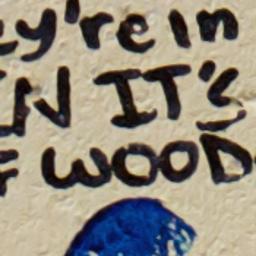 ey're in
N IT's
F WOOD